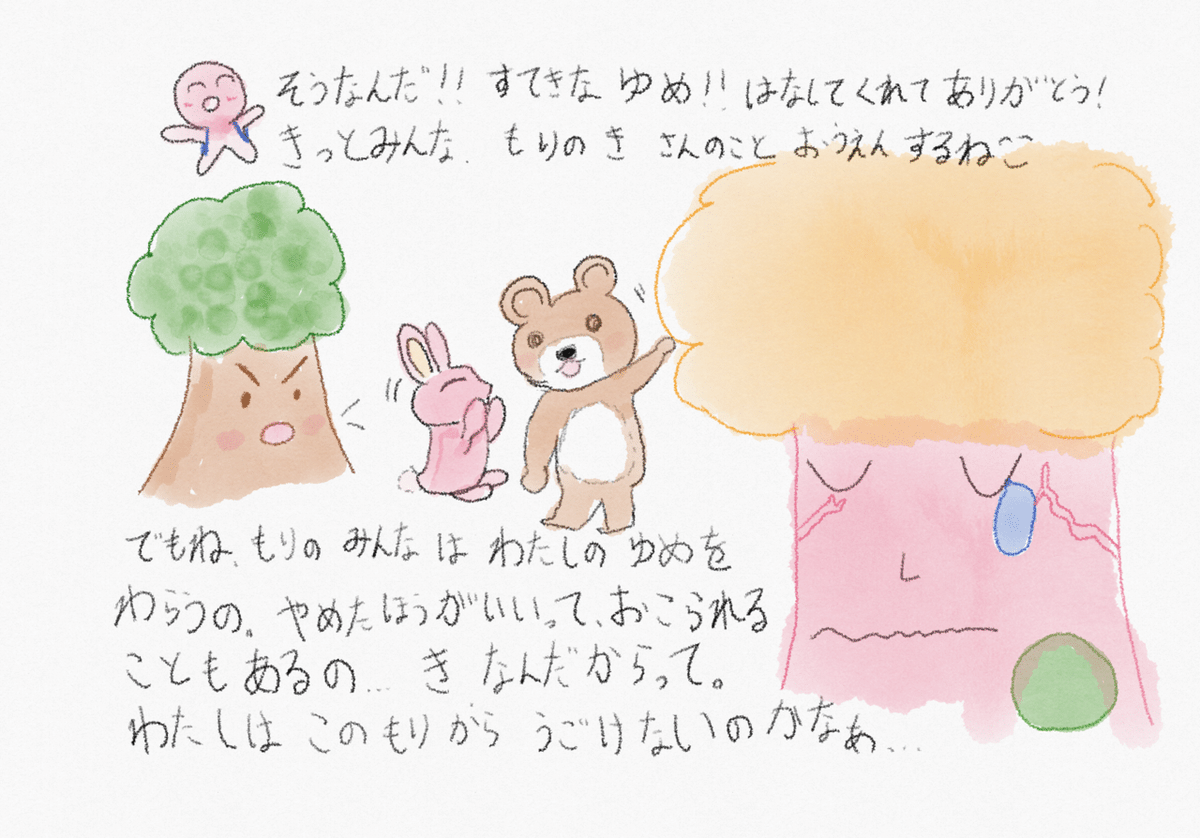 そうなんだ!! すてきな ゆめ!! はなしてくれて ありがとう!
きっとみんな. もりの き さんのこと おうえん するねこ
でもね、もりの みんな は わたしの ゆめを
わらうの。 やめた ほうがいいって、おこられる
こともあるの... き なんだからって。
わたしは このもりから うごけないのかなぁ...